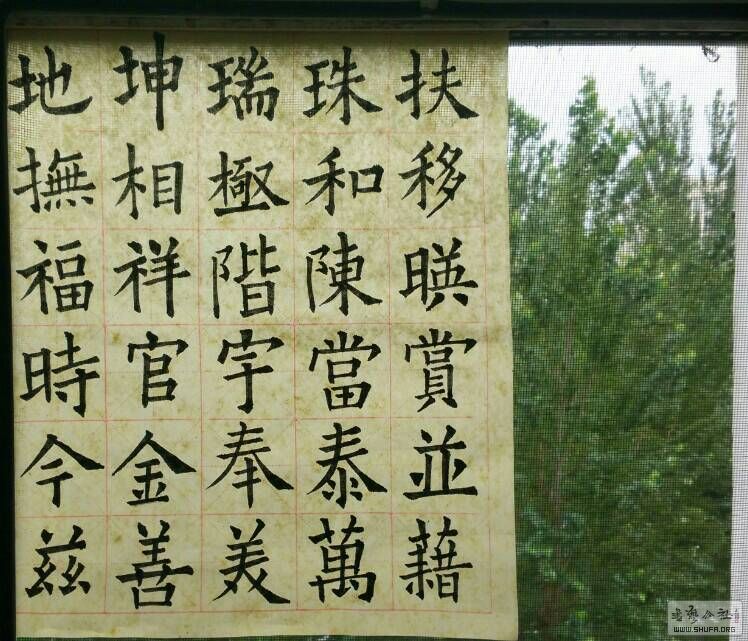 扶移暎賞並藉
珠和陳當泰萬
瑞極階宇奉美
坤相祥官金善
地撫福時今兹
WWW.SHUFA.ORG